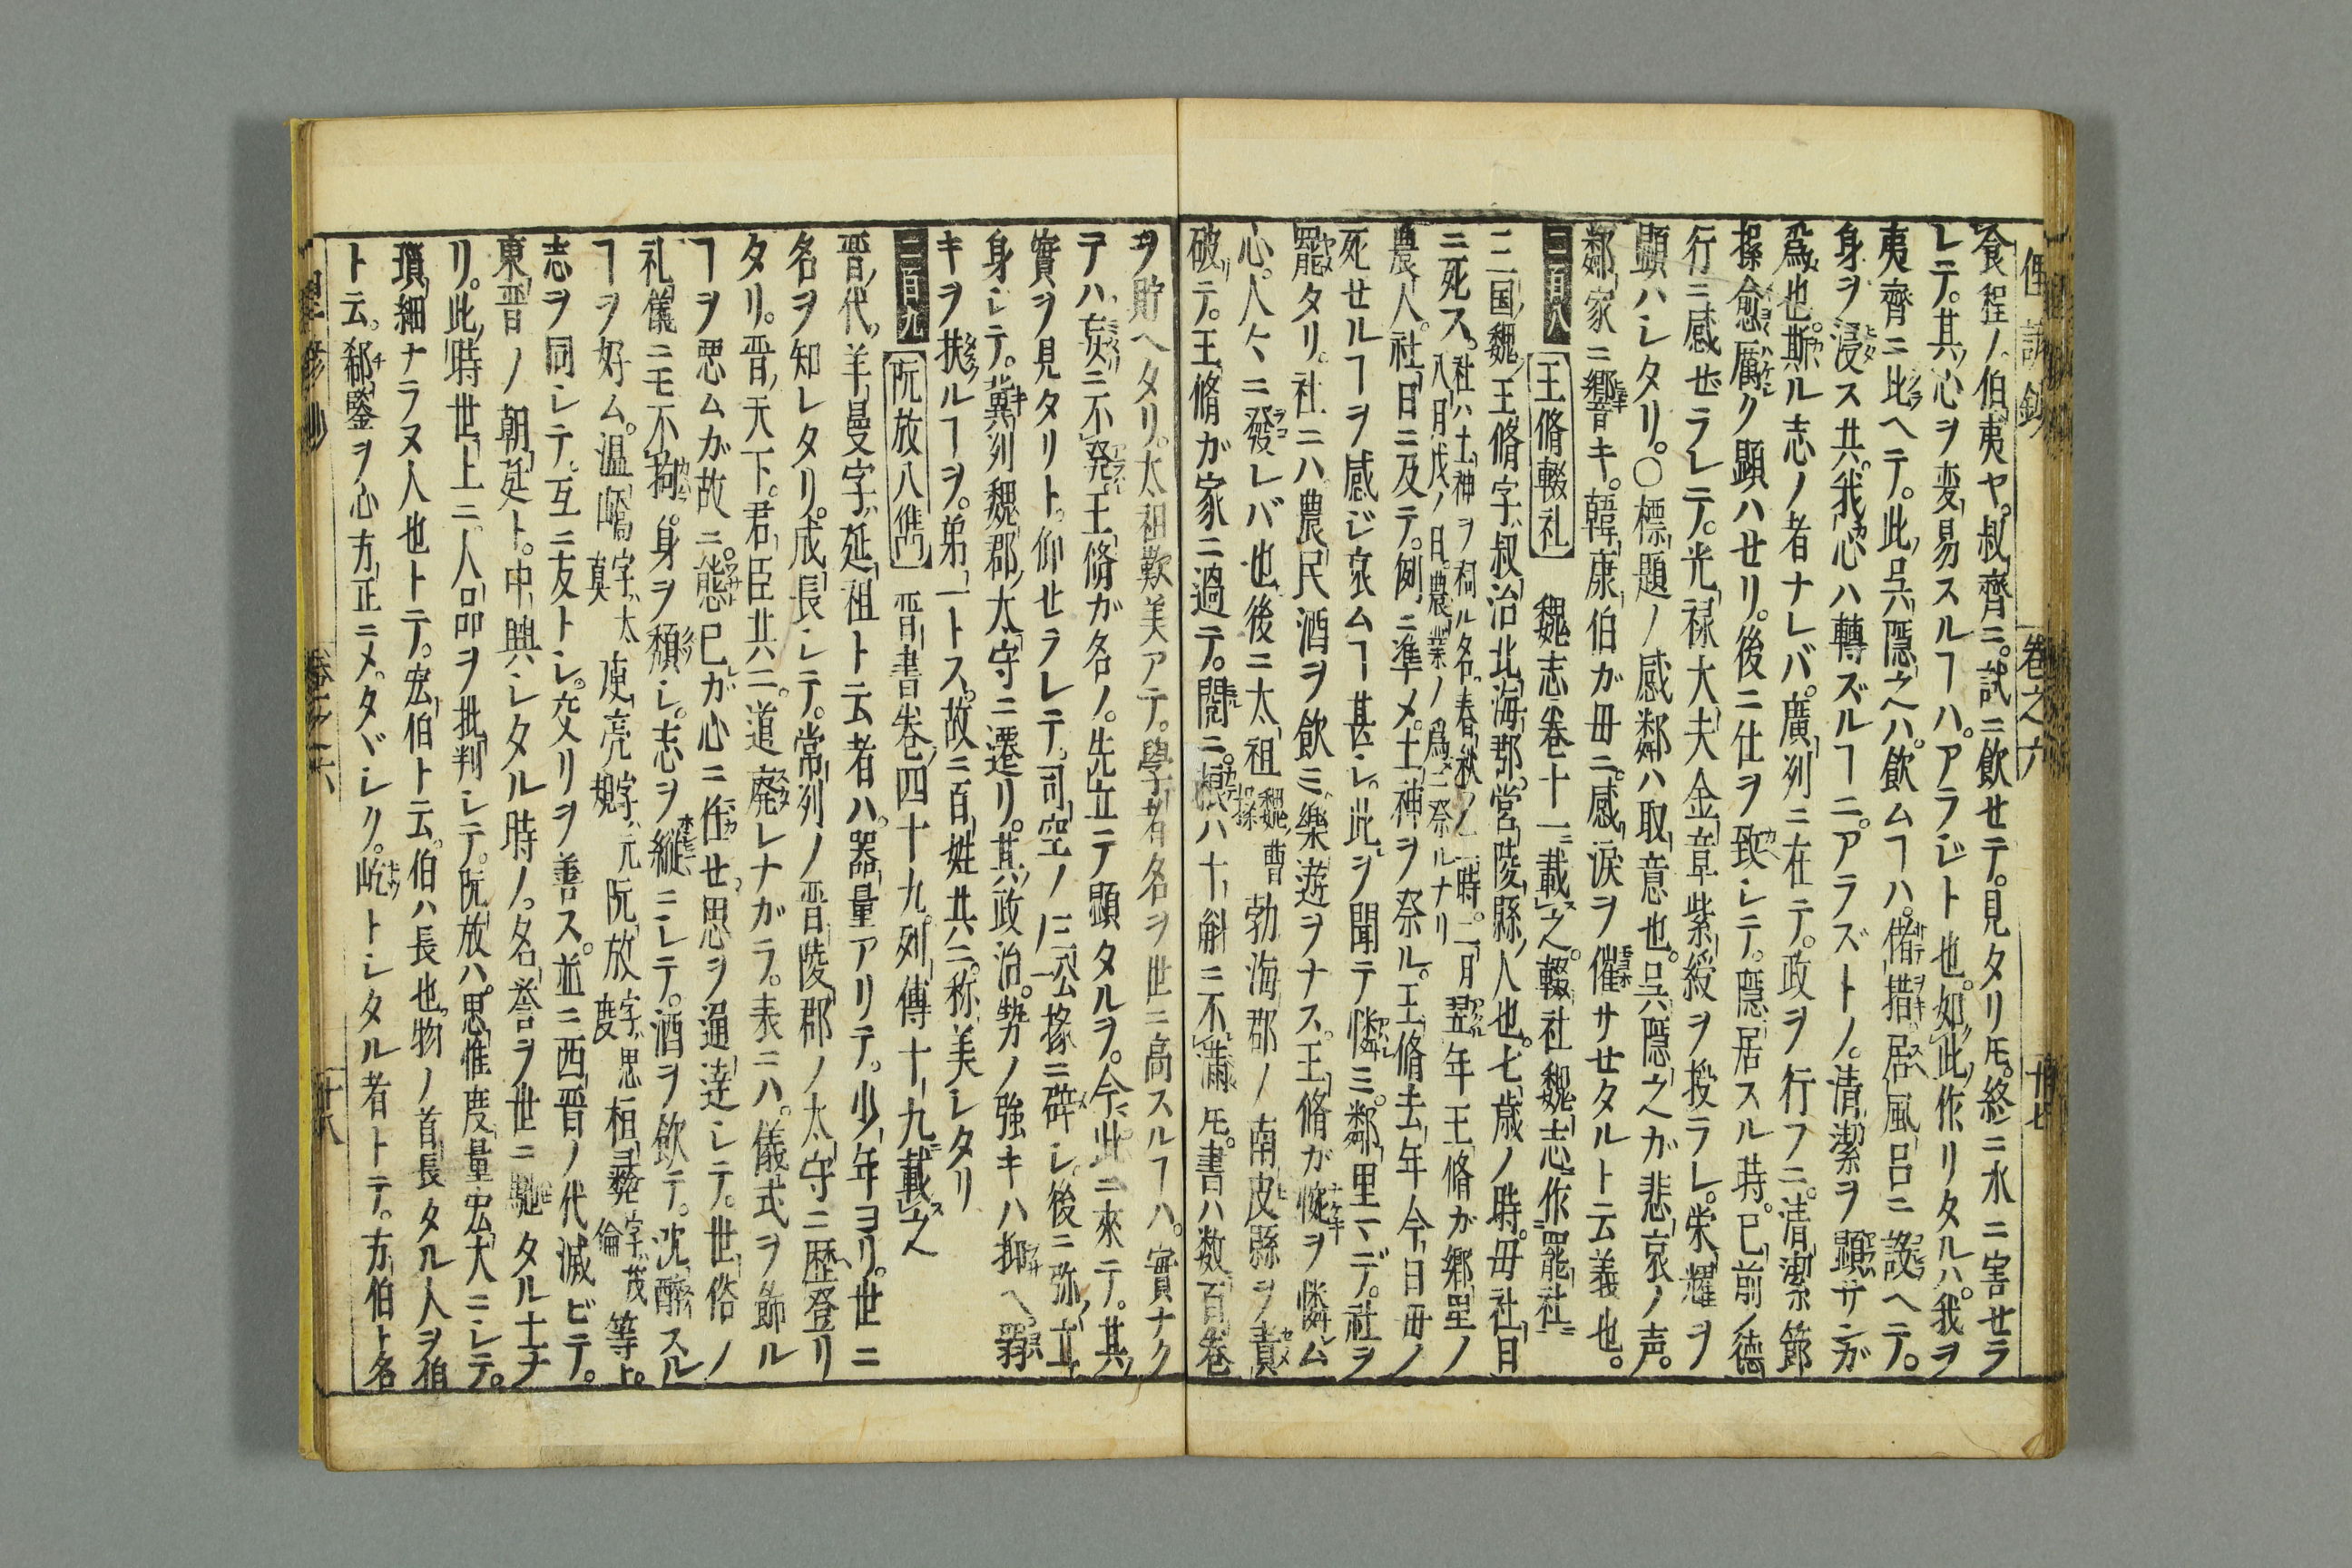 俚諺鈔 巻之六 十七
食程ノ伯夷ヤ。叔齊ニ。試ニ飲セテ。見タリ𪜈。終ニ水ニ害セラ
レテ。其心ヲ変易スルヿハ。アラジト也。如此作リタルハ。我ヲ
夷齊ニ比ヘテ。此呉隠之ハ。飲ムヿハ。偖措。居風呂ニ設ヘテ。
身ヲ浸ス共。我心ハ轉ズルヿニ。アラズトノ。清潔ヲ顕サンガ
爲也。斯ル志ノ者ナレバ。廣列ニ在テ。政ヲ行フニ。清潔ノ節
操愈厲ク顕ハセリ。後ニ仕ヲ致シテ。隠居スル時。已前ノ德
行ニ感ゼラレテ。光禄大夫金章紫綬ヲ投ラレ。栄耀ヲ
顕ハシタリ。○標題ノ感鄰ハ取意也。呉隠之ガ悲哀ノ声。
鄰家ニ響キ。韓康伯ガ毋ニ。感涙ヲ催サセタルト云義也。
二百八 王脩輟礼 魏志巻十一ニ載之。輟社魏志ニ作罷社ニ
三国魏王脩字叔治北海郡。営陵縣人也。七歳ノ時。毋社日
ニ死ス。社ハ土神ヲ祠ル名。春秋ノ二時。二月八月戊ノ日。農業ノ爲ニ祭ルナリ 翌年王脩ガ郷里ノ
農人。社日ニ及テ。例ニ準メ。土神ヲ祭ル。王脩去年今日毋ノ
死セルヿヲ感ジ哀ムヿ甚シ。此ヲ聞テ憐ミ。鄰里マデ。社ヲ
罷タリ。社ニハ農民酒ヲ飲ミ樂遊ヲナス。王脩が惋ヲ憐ム
心。人々ニ發レバ也。後ニ太祖魏曹操 勃海郡ノ南皮縣ヲ責
破テ。王脩ガ家ニ過テ。閲ニ。穀ハ十斛ニ不滿𪜈。書ハ数百巻
ヲ貯ヘタリ。太祖歎美アテ。學者名ヲ世ニ高スルヿハ。實ナク
テハ妄ニ不発。王脩ガ名ノ。先立テ顕タルヲ。今此ニ來テ。其
實ヲ見タリト。仰セラレテ。司空ノ三公掾ニ辟シ。後ニ弥立
身シテ。冀列魏郡ノ太守ニ遷リ。其政治。勢ノ強キハ抑ヘ。弱
キヲ扶ルヿヲ。弟一トス。故ニ百姓共ニ称美シタリ
二百九 阮放八雋 晋書巻四十九。列傳十九ニ載之
晋代。羊曼字延祖ト云者ハ。器量アリテ。少年ヨリ。世ニ
名ヲ知レタリ。成長シテ。常列ノ晋陵郡ノ太守ニ歴登リ
タリ。晋天下。君臣共ニ。道廃レナガラ。表ニハ。儀式ヲ飾ル
ヿヲ悪ムガ故ニ。態已ガ心ニ任セ。思ヲ通達シテ。世俗ノ
礼儀ニモ不拘。身ヲ頽シ。志ヲ縦ニシテ。酒ヲ飲テ。沈酔スル
ヿヲ好ム。温嶠字太真 庾亮字元規 阮放字思度 桓彝字茂倫 等ト。
志ヲ同シテ。互ニ友トシ。交リヲ善ス。並ニ西晋ノ代滅ビテ。
東晋ノ朝廷ト。中興シタル時ノ。名誉ヲ世ニ馳タル士ナ
リ。此時世上ニ。人品ヲ批判シテ。阮放ハ。思惟度量宏大ニシテ。
瑣細ナラヌ人也トテ。宏伯ト云。伯ハ長也。物ノ首長タル人ヲ伯
ト云。郗鑒ヲ心方正ニメ。タヾシク。屹トシタル者トテ。方伯ト名